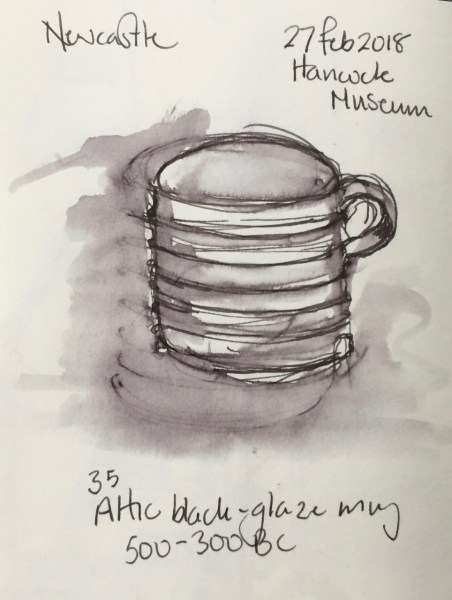 Newcastle
27 Feb 2018
Hancock
Museum
35
Attic black-glaze mug
500-300 BC